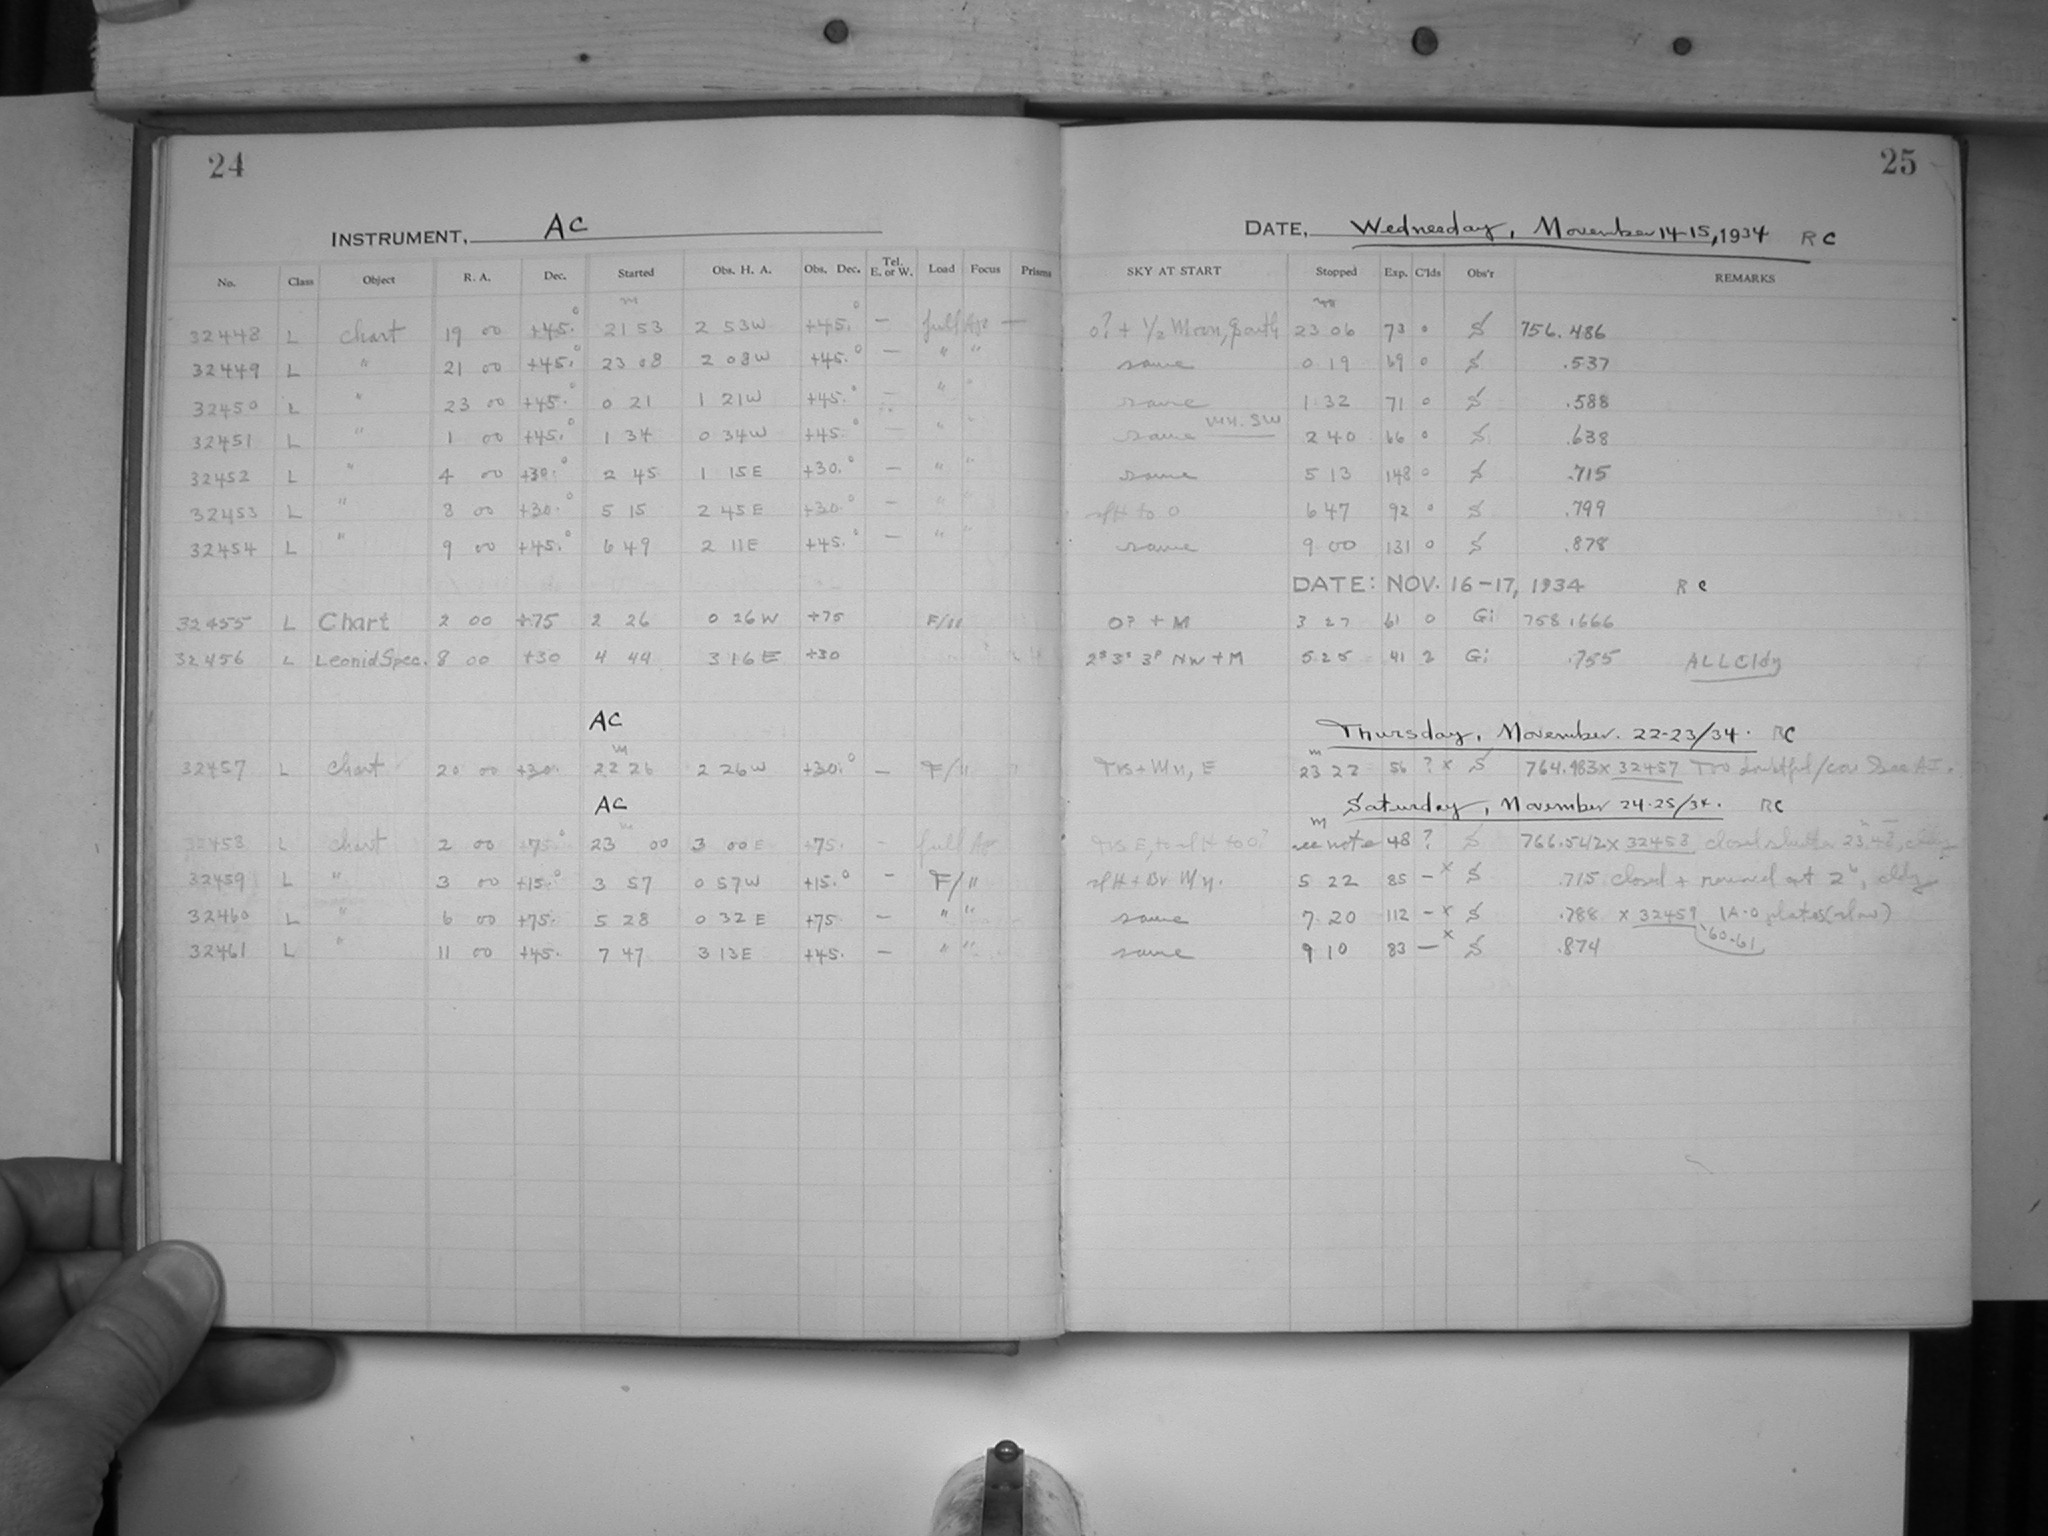 24
25
INSTRUMENT, AC
DATE, Wednesday, November 14-15, 1934 RC
No. Class Object R. A. Dec. Started Obs. H. A. Obs. Dec. Tel. E. or W. Load Focus Prisms SKY AT START Stopped Exp. C'lds Obs'r REMARKS
m m
32448 L Chart 19 00 +45.° 21 53 2 53W +45.° — full Ap — 0? + 1/2 Moon, South 23 06 73 0 S 756.486
32449 L " 21 00 +45.° 23 08 2 08W +45.° — " " same 0 19 69 0 S .537
32450 L " 23 00 +45.° 0 21 1 21W +45.° — " " same 1 32 71 0 S .588
32451 L " 1 00 +45.° 1 34 0 34W +45.° — " " same Mn. SW 2 40 66 0 S .638
32452 L " 4 00 +30.° 2 45 1 15E +30.° — " " same 5 13 148 0 S .715
32453 L " 8 00 +30.° 5 15 2 45E +30.° — " " slH to 0 6 47 92 0 S .799
32454 L " 9 00 +45.° 6 49 2 11E +45.° — " " same 9 00 131 0 S .878
DATE: NOV. 16-17, 1934 RC
32455 L Chart 2 00 +75 2 26 0 26W +75 F/" 0? + M 3 27 61 0 Gi 758.666
32456 L Leonid Spec. 8 00 +30 4 44 3 16E +30 2ˢ 3ˢ 3ᵖ NW + M 5 25 41 2 Gi .755 ALL Cldy
AC Thursday, November. 22-23/34. RC
m m
32457 L Chart 20 00 +30.° 22 26 2 26W +30.° — F/" + Mn, E 23 22 56 ? x S 764.983 x 32457 Too doubtful See AI.
AC Saturday, November 24-25/34. RC
m m
32458 L chart 2 00 +75.° 23 00 3 00E +75. - full Ap E, to slH to 0? see note 48 ? S 766.542 x 32458 closed shutter 23.48, cldy
32459 L " 3 00 +15.° 3 57 0 57W +15.° — F/" slH + Br Mn. 5 22 85 — x S .715 closed + removed at 2ʰ, cldy
32460 L " 6 00 +75. 5 28 0 32E +75 — " " same 7 20 112 — x S .788 x 32459 1A-0 plates (slow)
'60.61
32461 L " 11 00 +45. 7 47 3 13E +45. — " " same 9 10 83 — x S .874